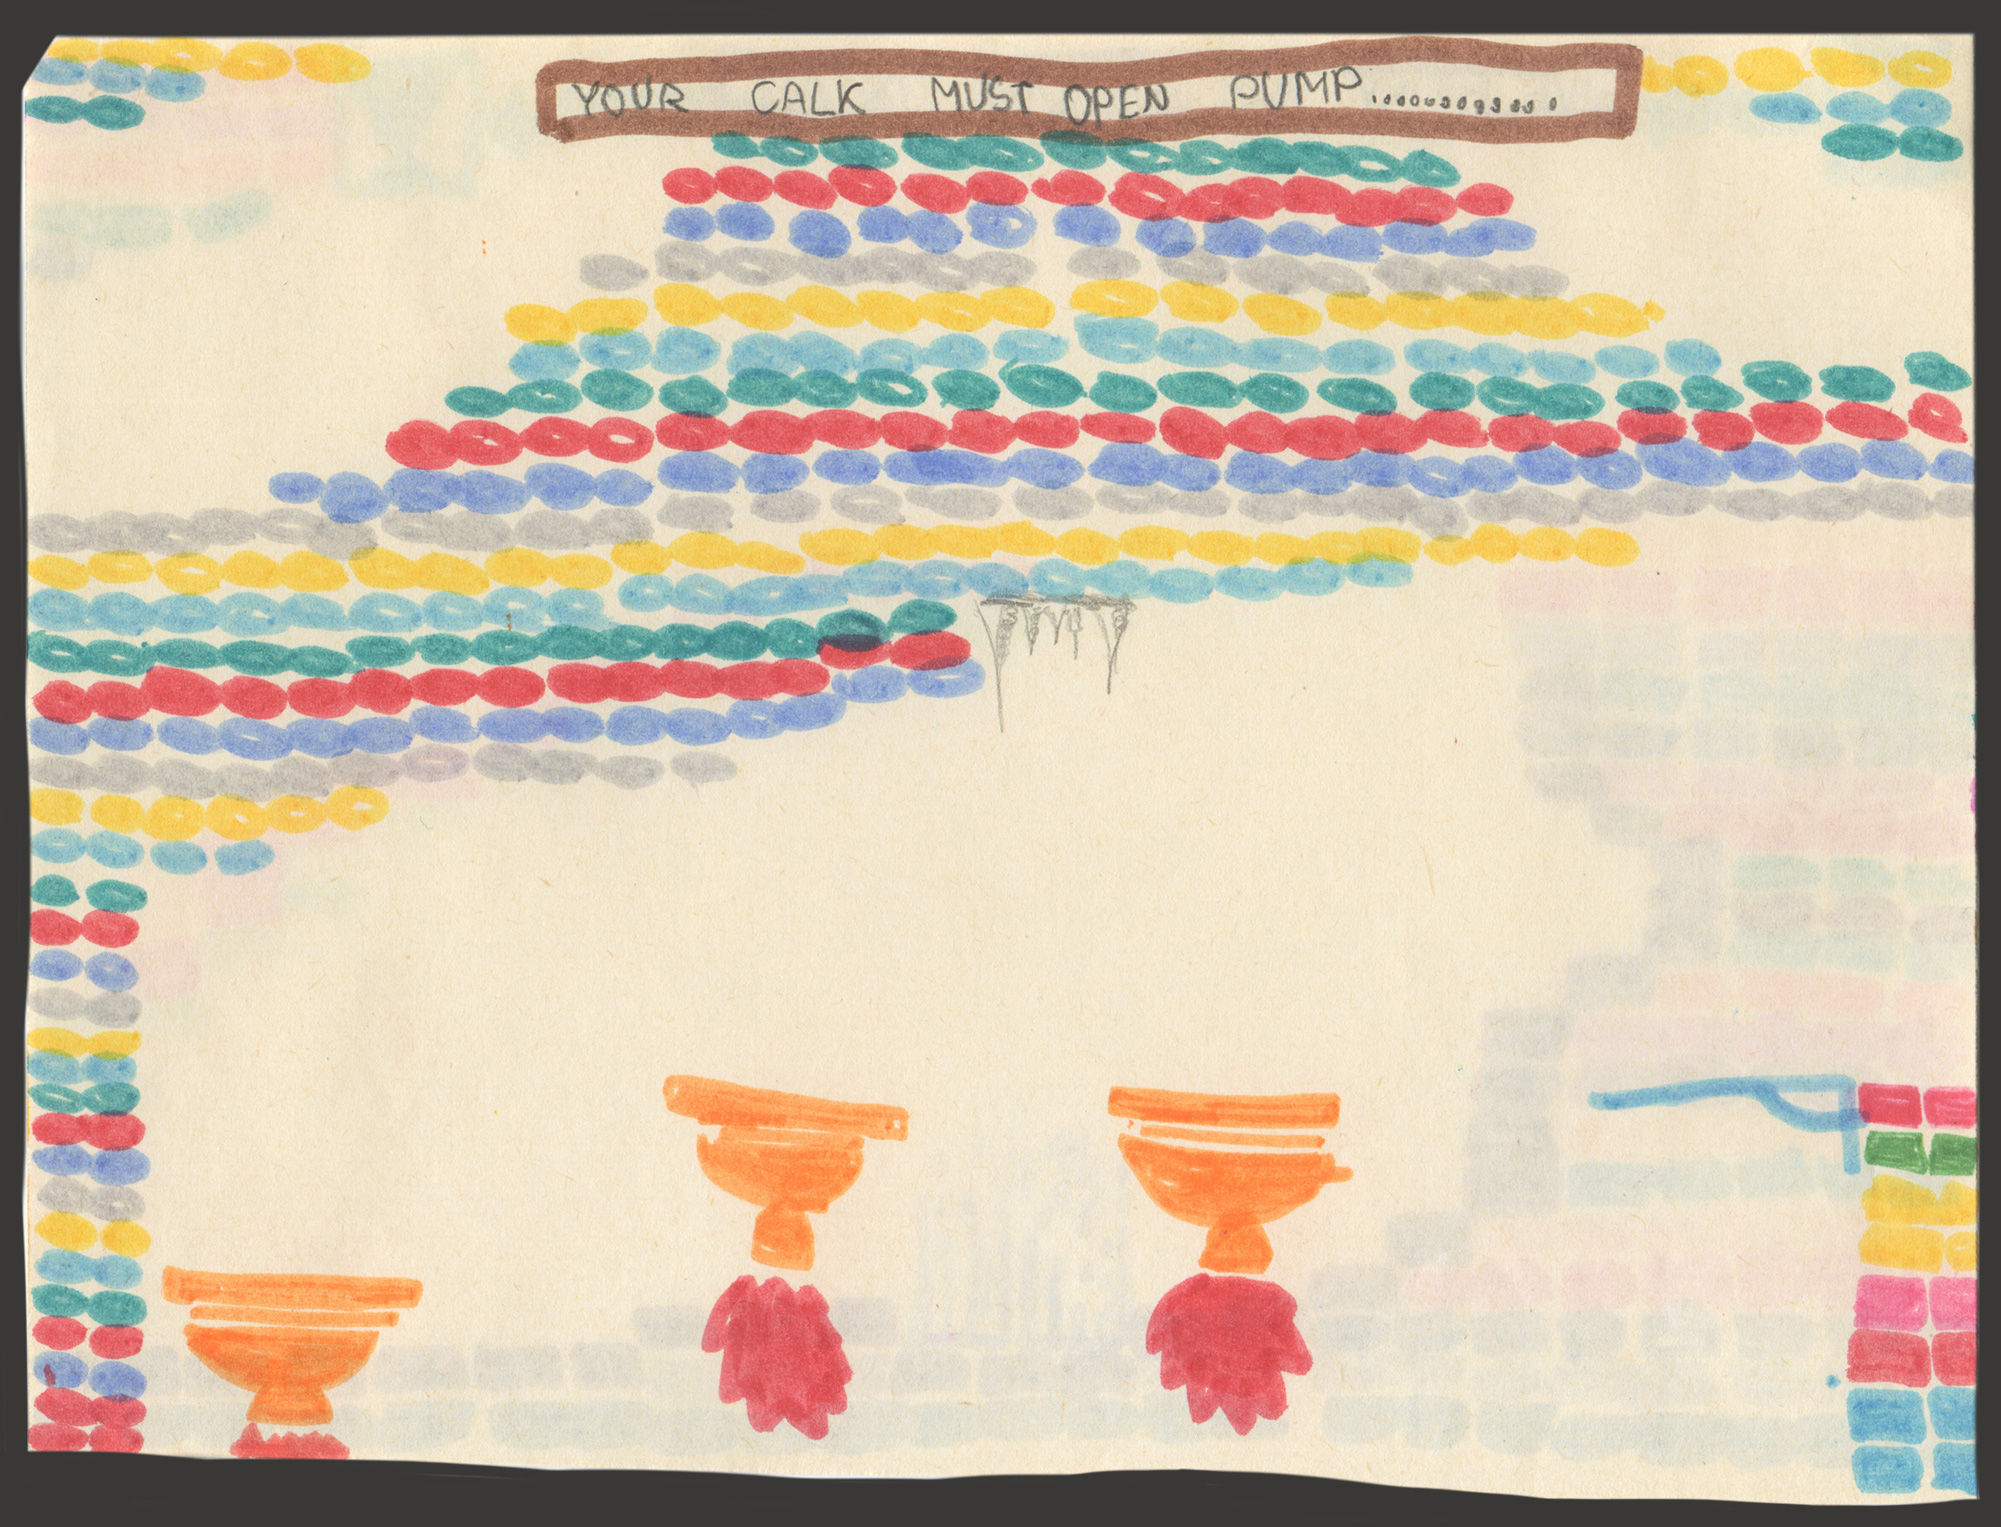 YOUR CALK MUST OPEN PUMP.............